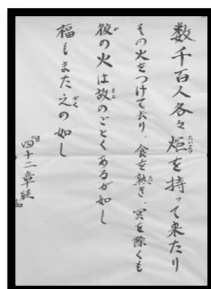 数千百人各々炬を持って来たり
その火をつけており、食を熟き、冥を除くも
彼の火は故のごとくあるが如し
福もまた之の如し
四十二章経